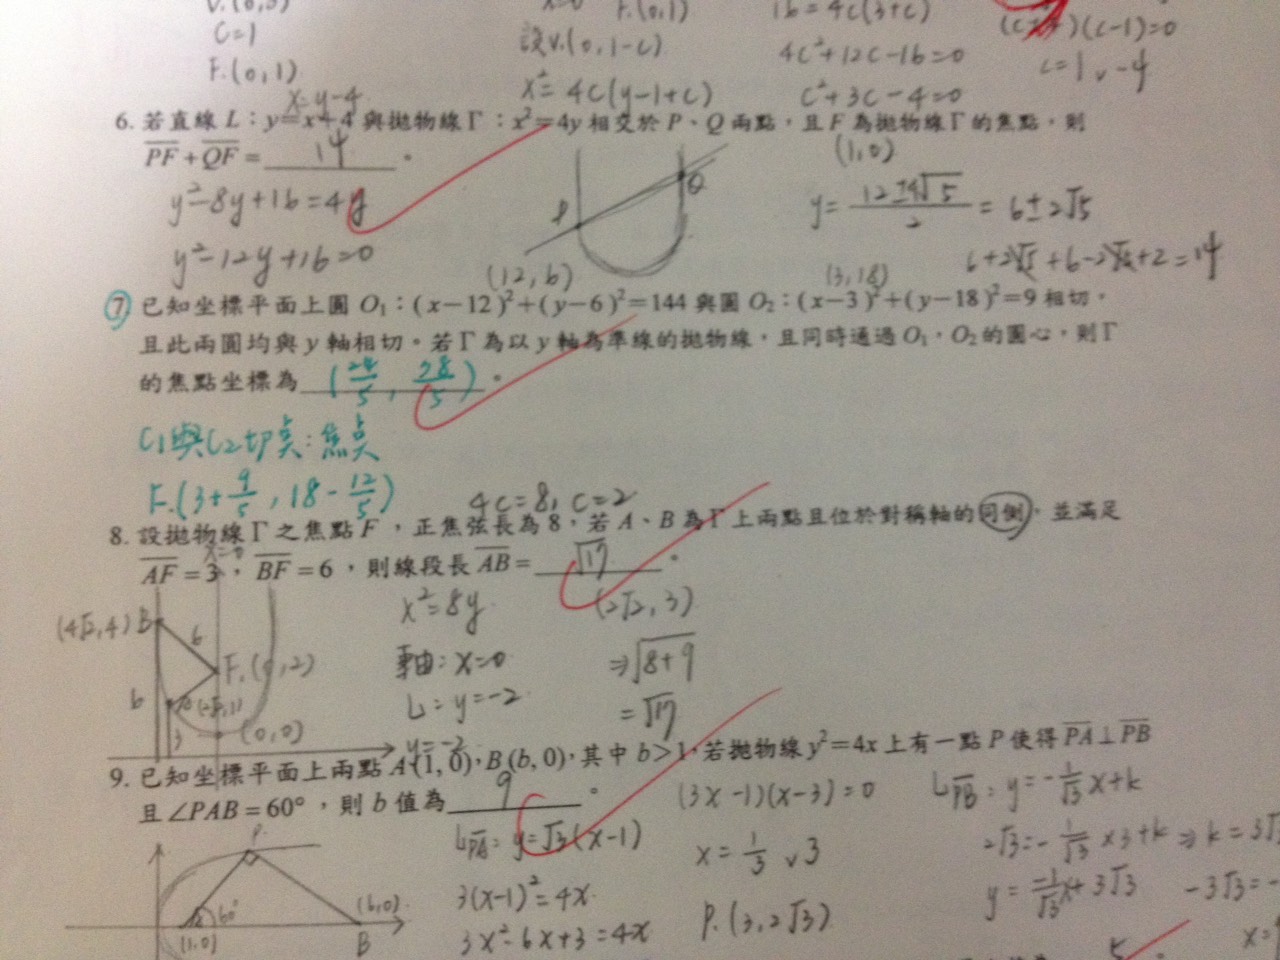 V.(0,3)
C=1
F.(0,1)
x=0 F.(0,1)
設V.(0,1-c)
x²=4c(y-1+c)
16=4c(3+c)
4c²+12c-16=0
c²+3c-4=0
(c+4)(c-1)=0
c=1 v -4
x=y-4
6. 若直線 L：y=x+4 與拋物線Γ：x²=4y 相交於 P、Q 兩點，且 F 為拋物線Γ的焦點，則
PF+QF= 14 。
(1,0)
y²-8y+16=4y
y²-12y+16=0
P
Q
y=(12±4√5)/2 = 6±2√5
6+2√5+6-2√5+2=14
(12,6)
(3,18)
⑦ 已知坐標平面上圓 O₁：(x-12)²+(y-6)²=144 與圓 O₂：(x-3)²+(y-18)²=9 相切，
且此兩圓均與 y 軸相切。若Γ為以 y 軸為準線的拋物線，且同時通過 O₁，O₂的圓心，則Γ
的焦點坐標為 (24/5, 28/5) 。
C₁與C₂切点：焦点
F.(3+9/5, 18-12/5)
4c=8, c=2
8. 設拋物線Γ之焦點 F ，正焦弦長為 8，若 A、B 為Γ上兩點且位於對稱軸的同側，並滿足
x=0
AF=3，BF=6，則線段長 AB= √17 。
(4√2,4) B
6
F.( ,2)
6
3
(0,0)
y=-2
x²=8y
軸：x=0
L：y=-2
(2√2,3)
⇒√8+9
=√17
9. 已知坐標平面上兩點 A(1,0)，B(b,0)，其中 b>1，若拋物線 y²=4x 上有一點 P 使得 PA⊥PB
且∠PAB=60°，則 b 值為 9 。
P
60°
(1,0)
(b,0)
B
L PA：y=√3(x-1)
3(x-1)²=4x
3x²-6x+3=4x
(3x-1)(x-3)=0
x=1/3 v 3
P.(3,2√3)
L PB：y=-1/√3 x+k
2√3=-1/√3 x3+k ⇒ k=3√3
y=-1/√3 x+3√3
-3√3=-
x=9
5